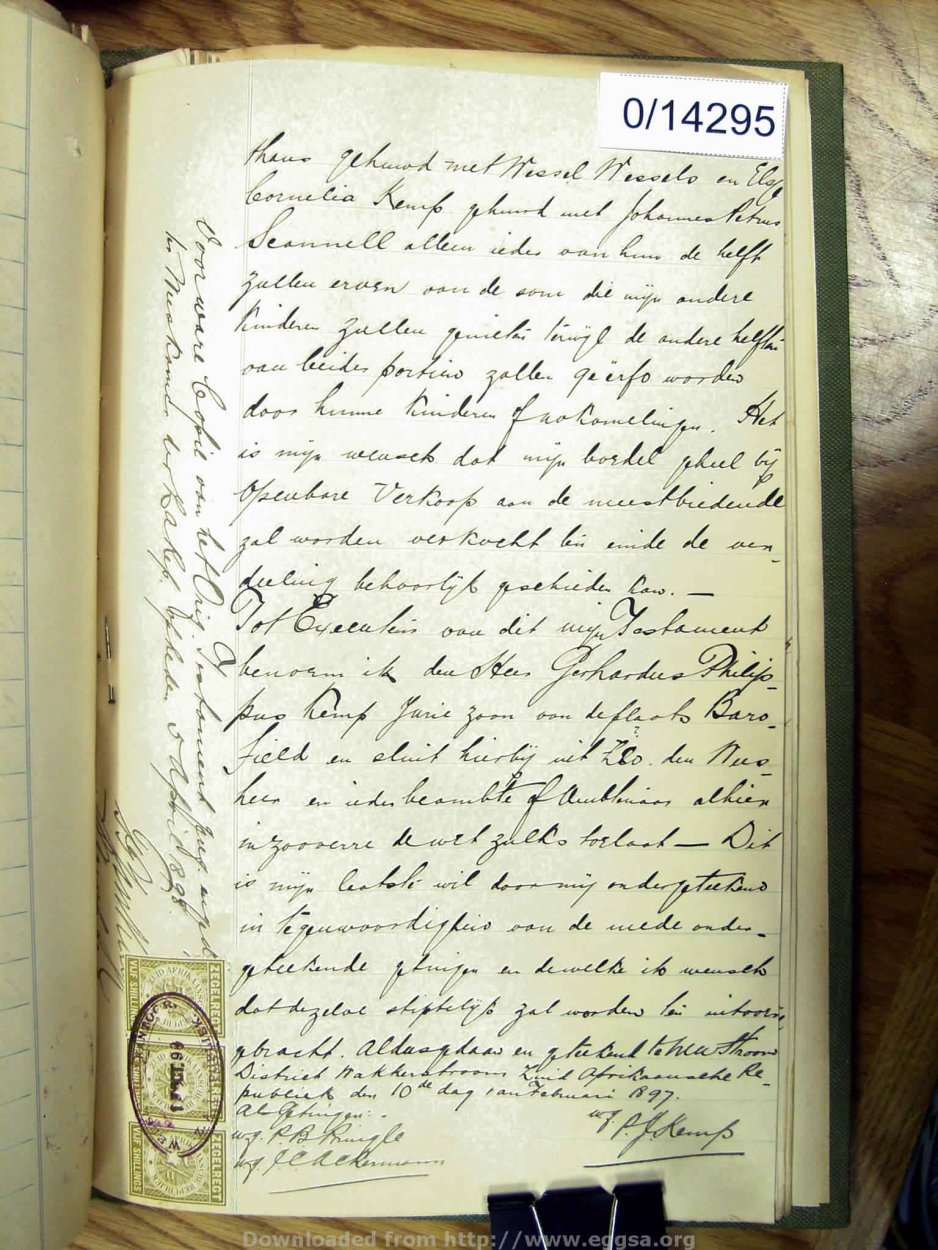 0/14295
thans gehuwd met Wessel Wessels en Elsje
Cornelia Kemp gehuwd met Johannes Petrus
Scannell alleen ieder van hun de helft
zullen erven van de som die mijn andere
Kinderen zullen genieten terwijl de andere helften
van beider portien zullen geërfd worden
door hunne Kinderen of nakomelingen. Het
is mijn wensch dat mijn boedel geheel bij
Openbare Verkoop aan de meestbiedende
zal worden verkocht ten einde de ver-
deeling behoorlijk geschieden kan. —
Tot Executeur van dit mijn Testament
benoem ik den Heer Gerhardus Philip-
pus Kemp Jurie zoon van de plaats
field en sluit hierbij uit den Wees
heer en ieder beambte of Ambtenaar alhier
in zooverre de wet zulks toelaat — Dit
is mijn laatste wil door mij ondergeteekend
in tegenwoordigheid van de mede onder-
geteekende getuigen en dewelke ik wensch
dat dezelve stiptelijk zal worden ten uitvoer
gebracht. Aldus gedaan en geteekend te
District Wakkerstroom Zuid Afrikaansche Re-
publiek den 10de dag van Februari 1897.
Als Getuigen:-
wg. P. J. Kemp
wg. R B Pringle
wg. J. C. Ackermann
Voor ware Copie van het Orig. Testament
op heden 5 April 1898.
ZEGELRECHT
VIJF SHILLINGS
ZEGELRECHT
VIJF SHILLINGS
Downloaded from http://www.eggsa.org